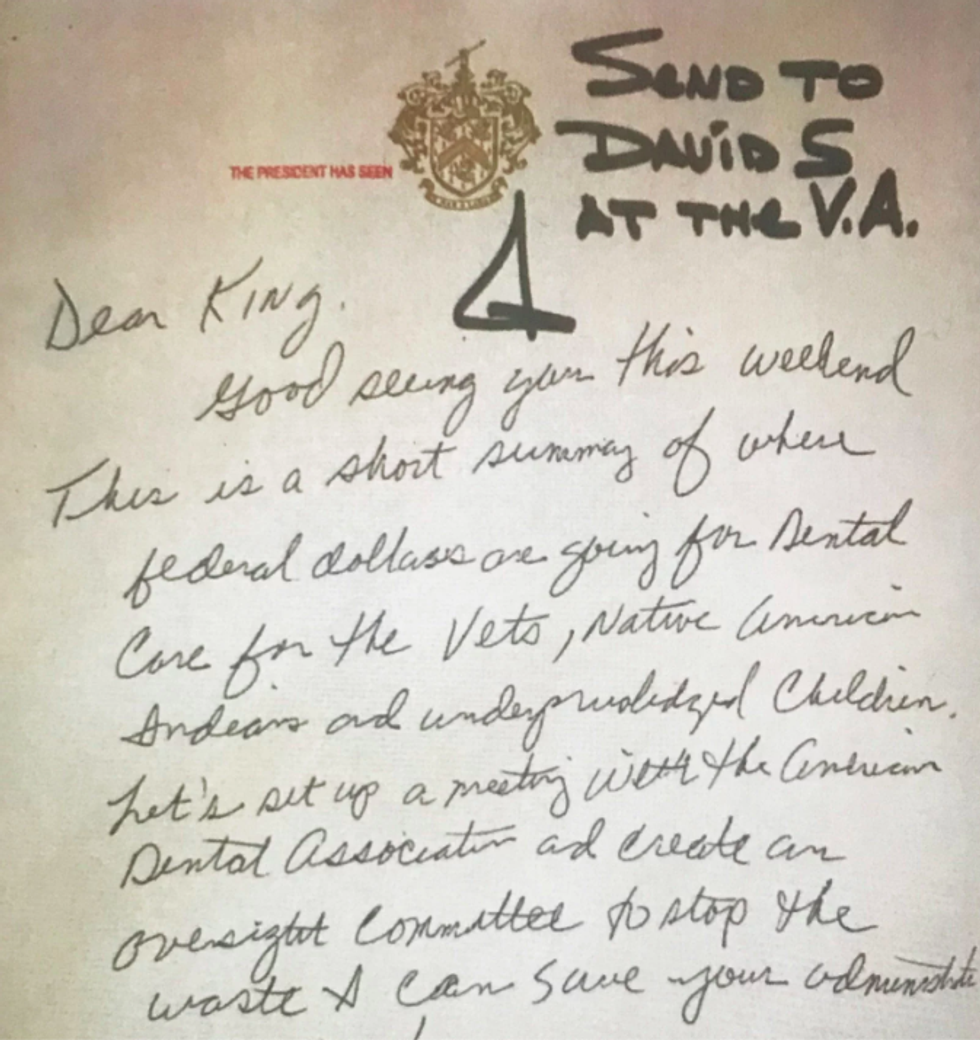 SEND TO
DAVID S
AT THE V.A.
THE PRESIDENT HAS SEEN
Dear King.
Good seeing you this weekend
This is a short summay of where
federal dollars are going for Dental
Care for the Vets, Native American
Indians and underpruledged Children.
Let's set up a meeting with the American
Dental Association and create an
oversight Committee to stop the
waste & I can save your administrati